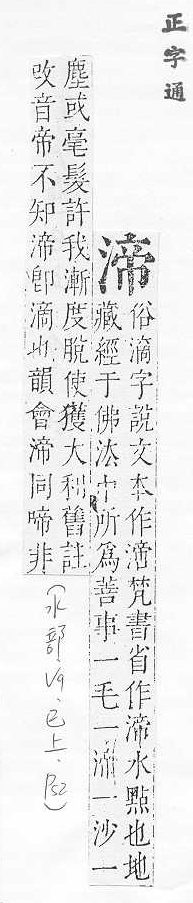 正字通
渧
俗滴字說文本作渧梵書省作渧水點也地
藏經于佛法中所爲善事一毛一渧一沙一
塵或毫髮許我漸度脫使獲大利舊註
攺音帝不知渧卽滴也韻會渧同啼非
(水部,V9,巳上,P52)